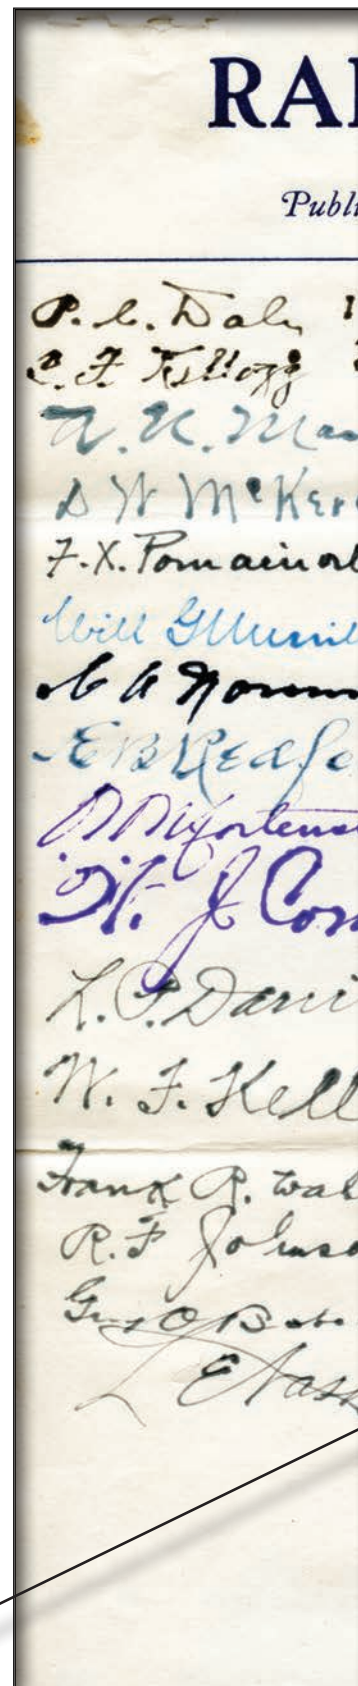 RA
Publi
P. C. Daly
C. F. Kellogg
A. K. Ma
D W McKer
F. X. Pomainvil
Will G Merril
C A Norm
E B Redfo
D D Mortens
W. J. Con
L. P. Dani
W. F. Kell
Frank R. Wal
R. F Johnso
Guy O Bab
L E Nas